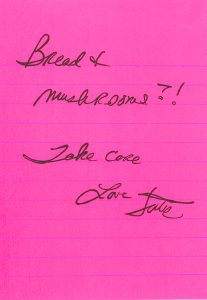 Bread &
mushrooms?!
Take care
Love